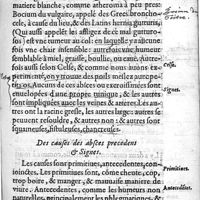 matiere blanche, comme atheroma à peu pres.
Bocium du vulgaire, appelé des Grecs bronchocele,
cele, à cause du lieu, & des Latins hernia gutturis.
Qui aussi appelle les affliger de ce mal gutturosi:
est une tumeur au col, en laquelle y a aucunesfois
vne chair insensible: autresfois, humeur
semblable à miel, graisse, boullie, ou eauë. Autresfois
aussi selon Celse, & comme ont trouué
les anciens, on y trouue des poils meslez auec petits
os. Aucuns de ces abscez ou excroissances sont
enuelopées d'une propre tunique, & les autres
sont impliquées auec les veines & arteres. Les autres
ont la racine gresle, les autres large: les autres
peuuent resouldre, & autres non: & autres sont
squameuses, fistuleuses, chancreuses.
Des causes des abscez precedens
& Signes.
Les causes sont primitiues, antecedentes, conioinctes.
Les primitiues sont, côme cheute, coup
trop boire, & manger, & mauuaise maniere de
viure. Antecedentes, comme les humeurs non
naturelles, principalement les phlegmatiques, &
Celse.
Primitiues.
Antecedẽt.